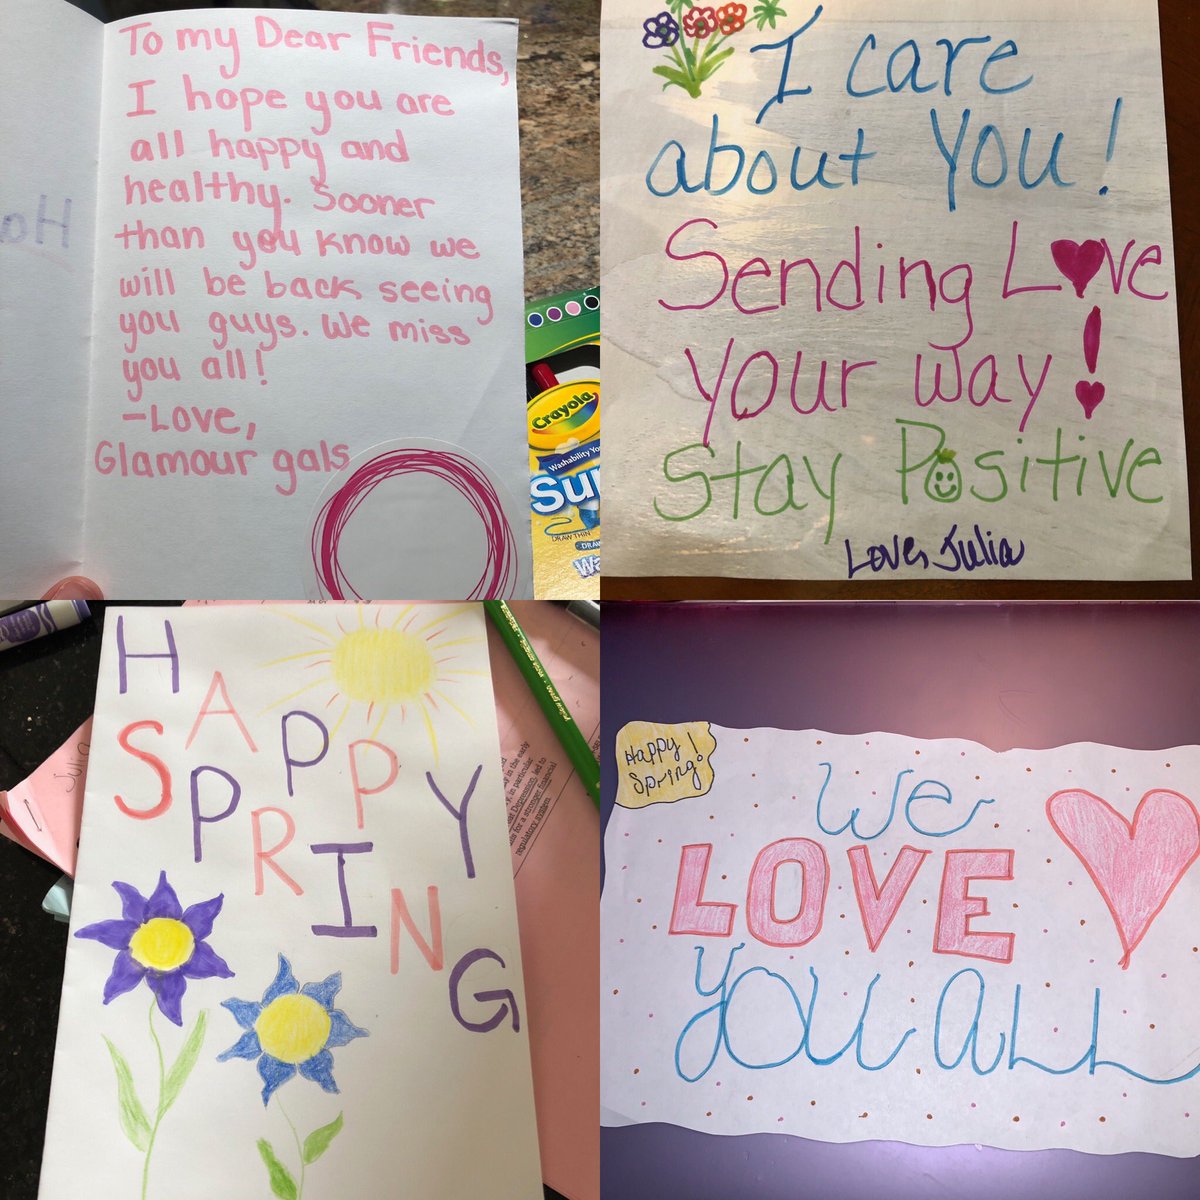 To my Dear Friends,
I hope you are
all happy and
healthy. Sooner
than you know we
will be back seeing
you guys. We miss
you all!
-Love,
Glamour gals
Crayola
I care
about You!
Sending Love
your way!
Stay Positive
Love, Julia
HAPPY
SPRING
Julia
Happy
Spring!
We
LOVE
You ALL